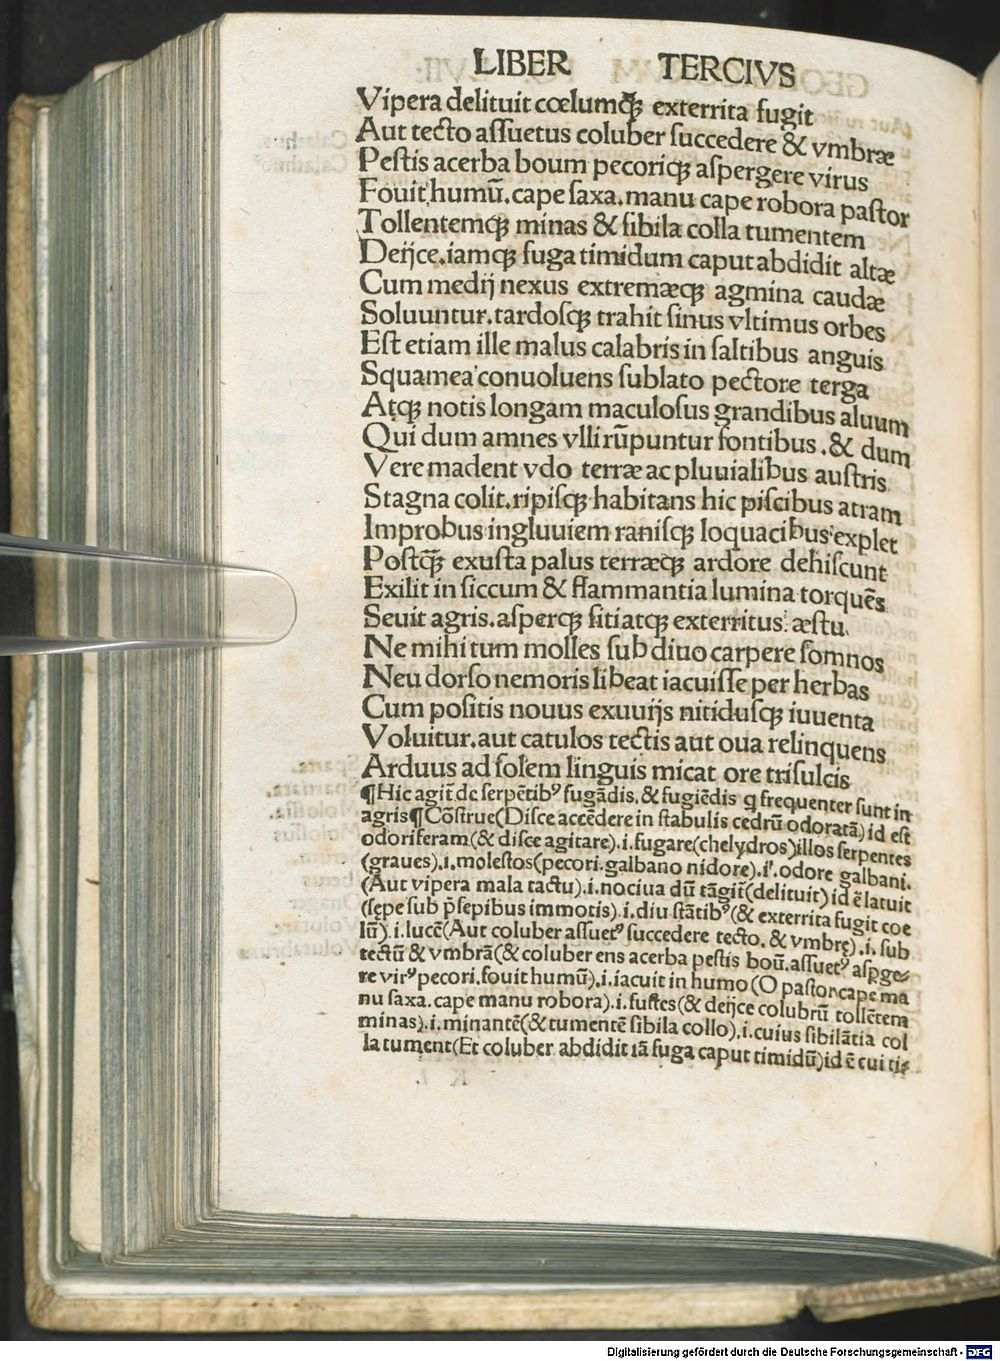 LIBER TERCIVS
Vipera delituit cœlumqꝫ exterrita fugit
Aut tecto aſſuetus coluber ſuccedere & vmbræ
Peſtis acerba boum pecoriqꝫ aſpergere virus
Fouit humū. cape ſaxa. manu cape robora paſtor
Tollentemqꝫ minas & ſibila colla tumentem
Deijce. iamqꝫ fuga timidum caput abdidit altæ
Cum medij nexus extremæqꝫ agmina caudæ
Soluuntur. tardoſqꝫ trahit ſinus vltimus orbes
Eſt etiam ille malus calabris in ſaltibus anguis
Squamea conuoluens ſublato pectore terga
Atqꝫ notis longam maculoſus grandibus aluum
Qui dum amnes vlli rūpuntur fontibus. & dum
Vere madent vdo terræ ac pluuialibus auſtris
Stagna colit. ripiſqꝫ habitans hic piſcibus atram
Improbus ingluuiem raniſqꝫ loquacibus explet
Poſtqꝫ̄ exuſta palus terræqꝫ ardore dehiſcunt
Exilit in ſiccum & flammantia lumina torquēs
Seuit agris. aſperqꝫ ſitiatqꝫ exterritus æſtu.
Ne mihi tum molles ſub diuo carpere ſomnos
Neu dorſo nemoris libeat iacuiſſe per herbas
Cum poſitis nouus exuuijs nitiduſqꝫ iuuenta
Voluitur. aut catulos tectis aut oua relinquens
Arduus ad ſolem linguis micat ore triſulcis
¶Hic agit̄ de ſerpētibꝰ fugādis. & fugiēdis q frequenter ſunt in
agris ¶Cōſtrue(Diſce accēdere in ſtabulis cedrū odoratā) id eſt
odoriferam(& diſce agitare).i.fugare(chelydros)illos ſerpentes
(graues).i.moleſtos(pecori.galbano nidore).i.odore galbani.
(Aut vipera mala tactu).i.nociua dū tāgit̄(delituit) id ē latuit
(ſępe ſub p̄ſepibus immotis).i.diu ſtātibꝰ(& exterrita fugit coe
lū).i.lucē(Aut coluber aſſuetꝰ ſuccedere tecto. & vmbrę).i. ſub
tectū & vmbrā(& coluber ens acerba peſtis boū.aſſuetꝰ aſpge⸗
re virꝰ pecori.fouit humū).i.iacuit in humo(O paſtor cape ma
nu ſaxa.cape manu robora).i.fuſtes(& deijce colubrū tollētem
minas).i.minantē(& tumentē ſibila collo).i.cuius ſibilātia col
la tument(Et coluber abdidit iā fuga caput timidū)id ē cui ti⸗
Digitalisierung gefördert durch die Deutsche Forschungsgemeinschaft - DFG